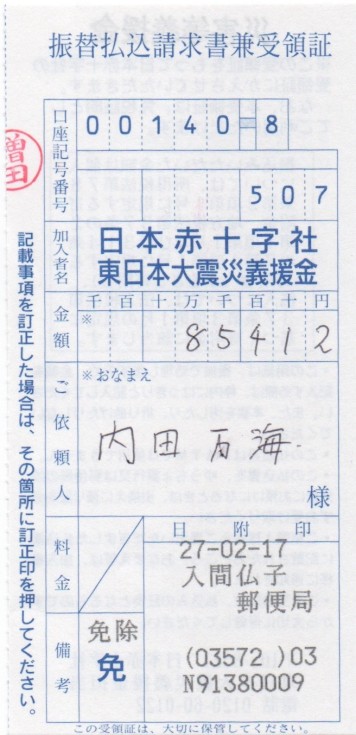 振替払込請求書兼受領証
口座記号番号
00140-8
507
加入者名
日本赤十字社
東日本大震災義援金
金額
千百十万千百十円
※
85412
ご依頼人
※おなまえ
内田百海
様
料金
日附印
27-02-17
入間仏子
郵便局
(03572 )03
N91380009
備考
免除
免
この受領証は、大切に保管してください。
増田
記載事項を訂正した場合は、その箇所に訂正印を押してください。